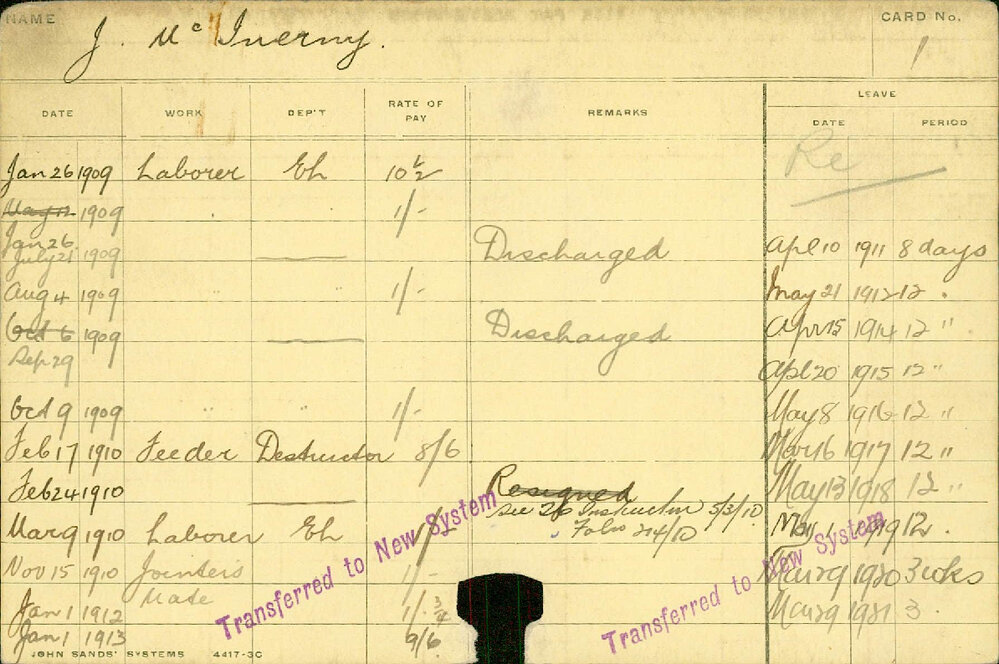 NAME
J. McInerny.
CARD No.
1
DATE WORK DEP'T RATE OF PAY REMARKS
LEAVE
DATE PERIOD
Re
Jan 26 1909 Laborer Eh 10½
May 12 1909 1/-
Jan 26
July 21 1909 — Discharged
Apl 10 1911 8 days
Aug 4 1909 1/-
May 21 1912 12 "
Oct 6 1909 — Discharged
Sep 29
Apr 15 1914 12 "
Apl 20 1915 12 "
Oct 9 1909 " " 1/-
May 8 1916 12 "
Feb 17 1910 Feeder Destructor 8/6
Mar 6 1917 12 "
Feb 24 1910 — Resigned
see Instruction 5/3/10
Folio 214/10
May 13 1918 12 "
Mar 9 1910 Laborer Eh 1/-
1 1919 12
Nov 15 1910 Jointers Mate 1/-
Mar 29 1920 3 wks
Jan 1 1912 1/- 3/4
Mar 29 1921 3
Jan 1 1913 9/6
Transferred to New System
Transferred to New System
JOHN SANDS' SYSTEMS 4417-3C